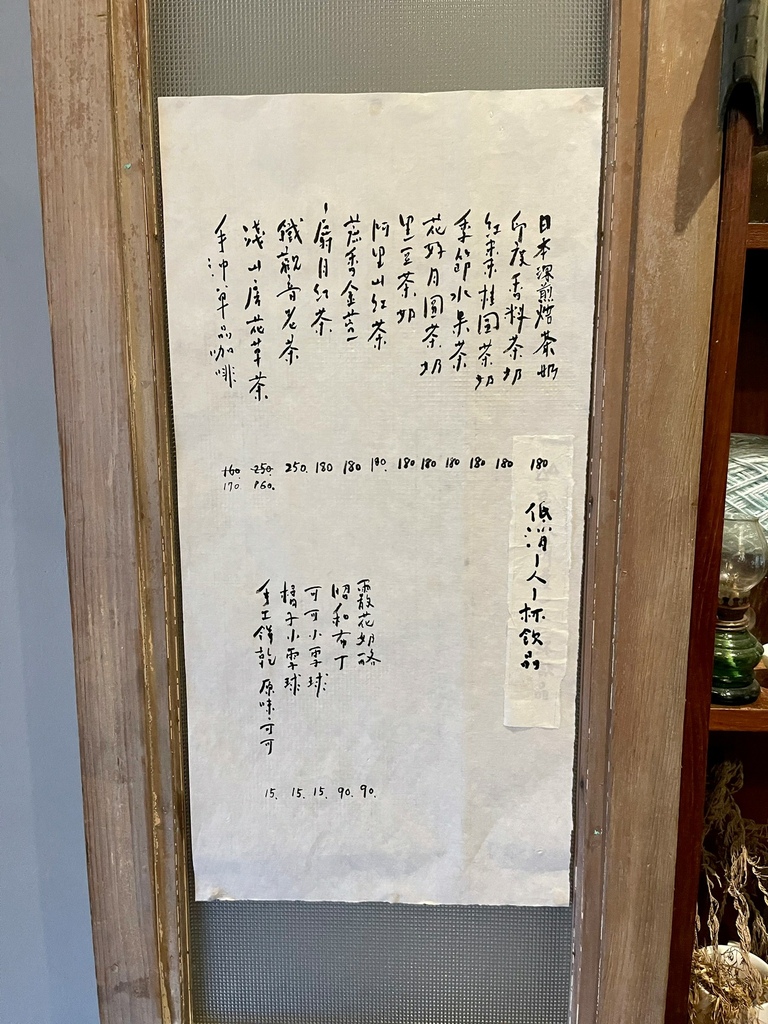 日本深煎焙茶奶 180
印度香料茶奶 180
紅棗桂圓茶奶 180
季節水果茶 180
花好月圓茶奶 180
黑豆茶奶 180
阿里山紅茶 180.
蔗香金萱 180
一扇月紅茶 180
鐵觀音老茶 250.
淺山房花草茶 250. 260.
手沖單品咖啡 160. 170.
低消一人一杯飲品
霰花奶酪 90.
昭和布丁 90.
可可小雪球 15.
橘子小雪球 15.
手工餅乾 原味·可可 15.